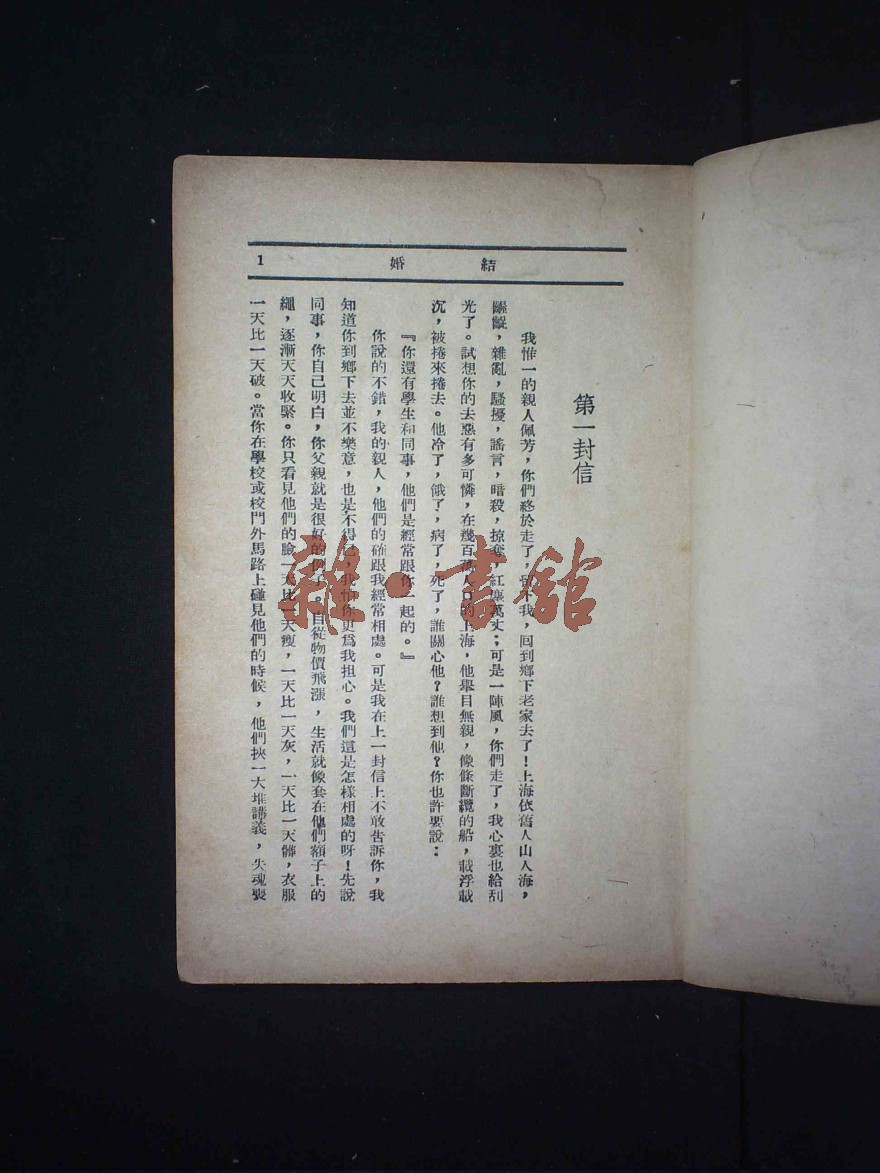 結婚
1
第一封信
我惟一的親人佩芳，你們終於走了，留下我，回到鄉下老家去了！上海依舊人山人海，
齷齪，雜亂，騷擾，謠言，暗殺，掠奪，紅塵萬丈；可是一陣風，你們走了，我心裏也給刮
光了。試想你的去惡有多可憐，在幾百萬人口的上海，他舉目無親，像條斷纜的船，載浮載
沉，被捲來捲去。他冷了，餓了，病了，死了，誰關心他？誰想到他？你也許要說：
『你還有學生和同事，他們是經常跟你一起的。』
你說的不錯，我的親人，他們的確跟我經常相處。可是我在上一封信上不敢告訴你，我
知道你到鄉下去並不樂意，也是不得已，我怕你更爲我担心。我們這是怎樣相處的呀！先說
同事，你自己明白，你父親就是很好的例子。自從物價飛漲，生活就像套在他們額子上的
繩，逐漸天天收緊。你只看見他們的臉一天比一天瘦，一天比一天灰，一天比一天髒，衣服
一天比一天破。當你在學校或校門外馬路上碰見他們的時候，他們挾一大堆講義，失魂喪
雜·書館